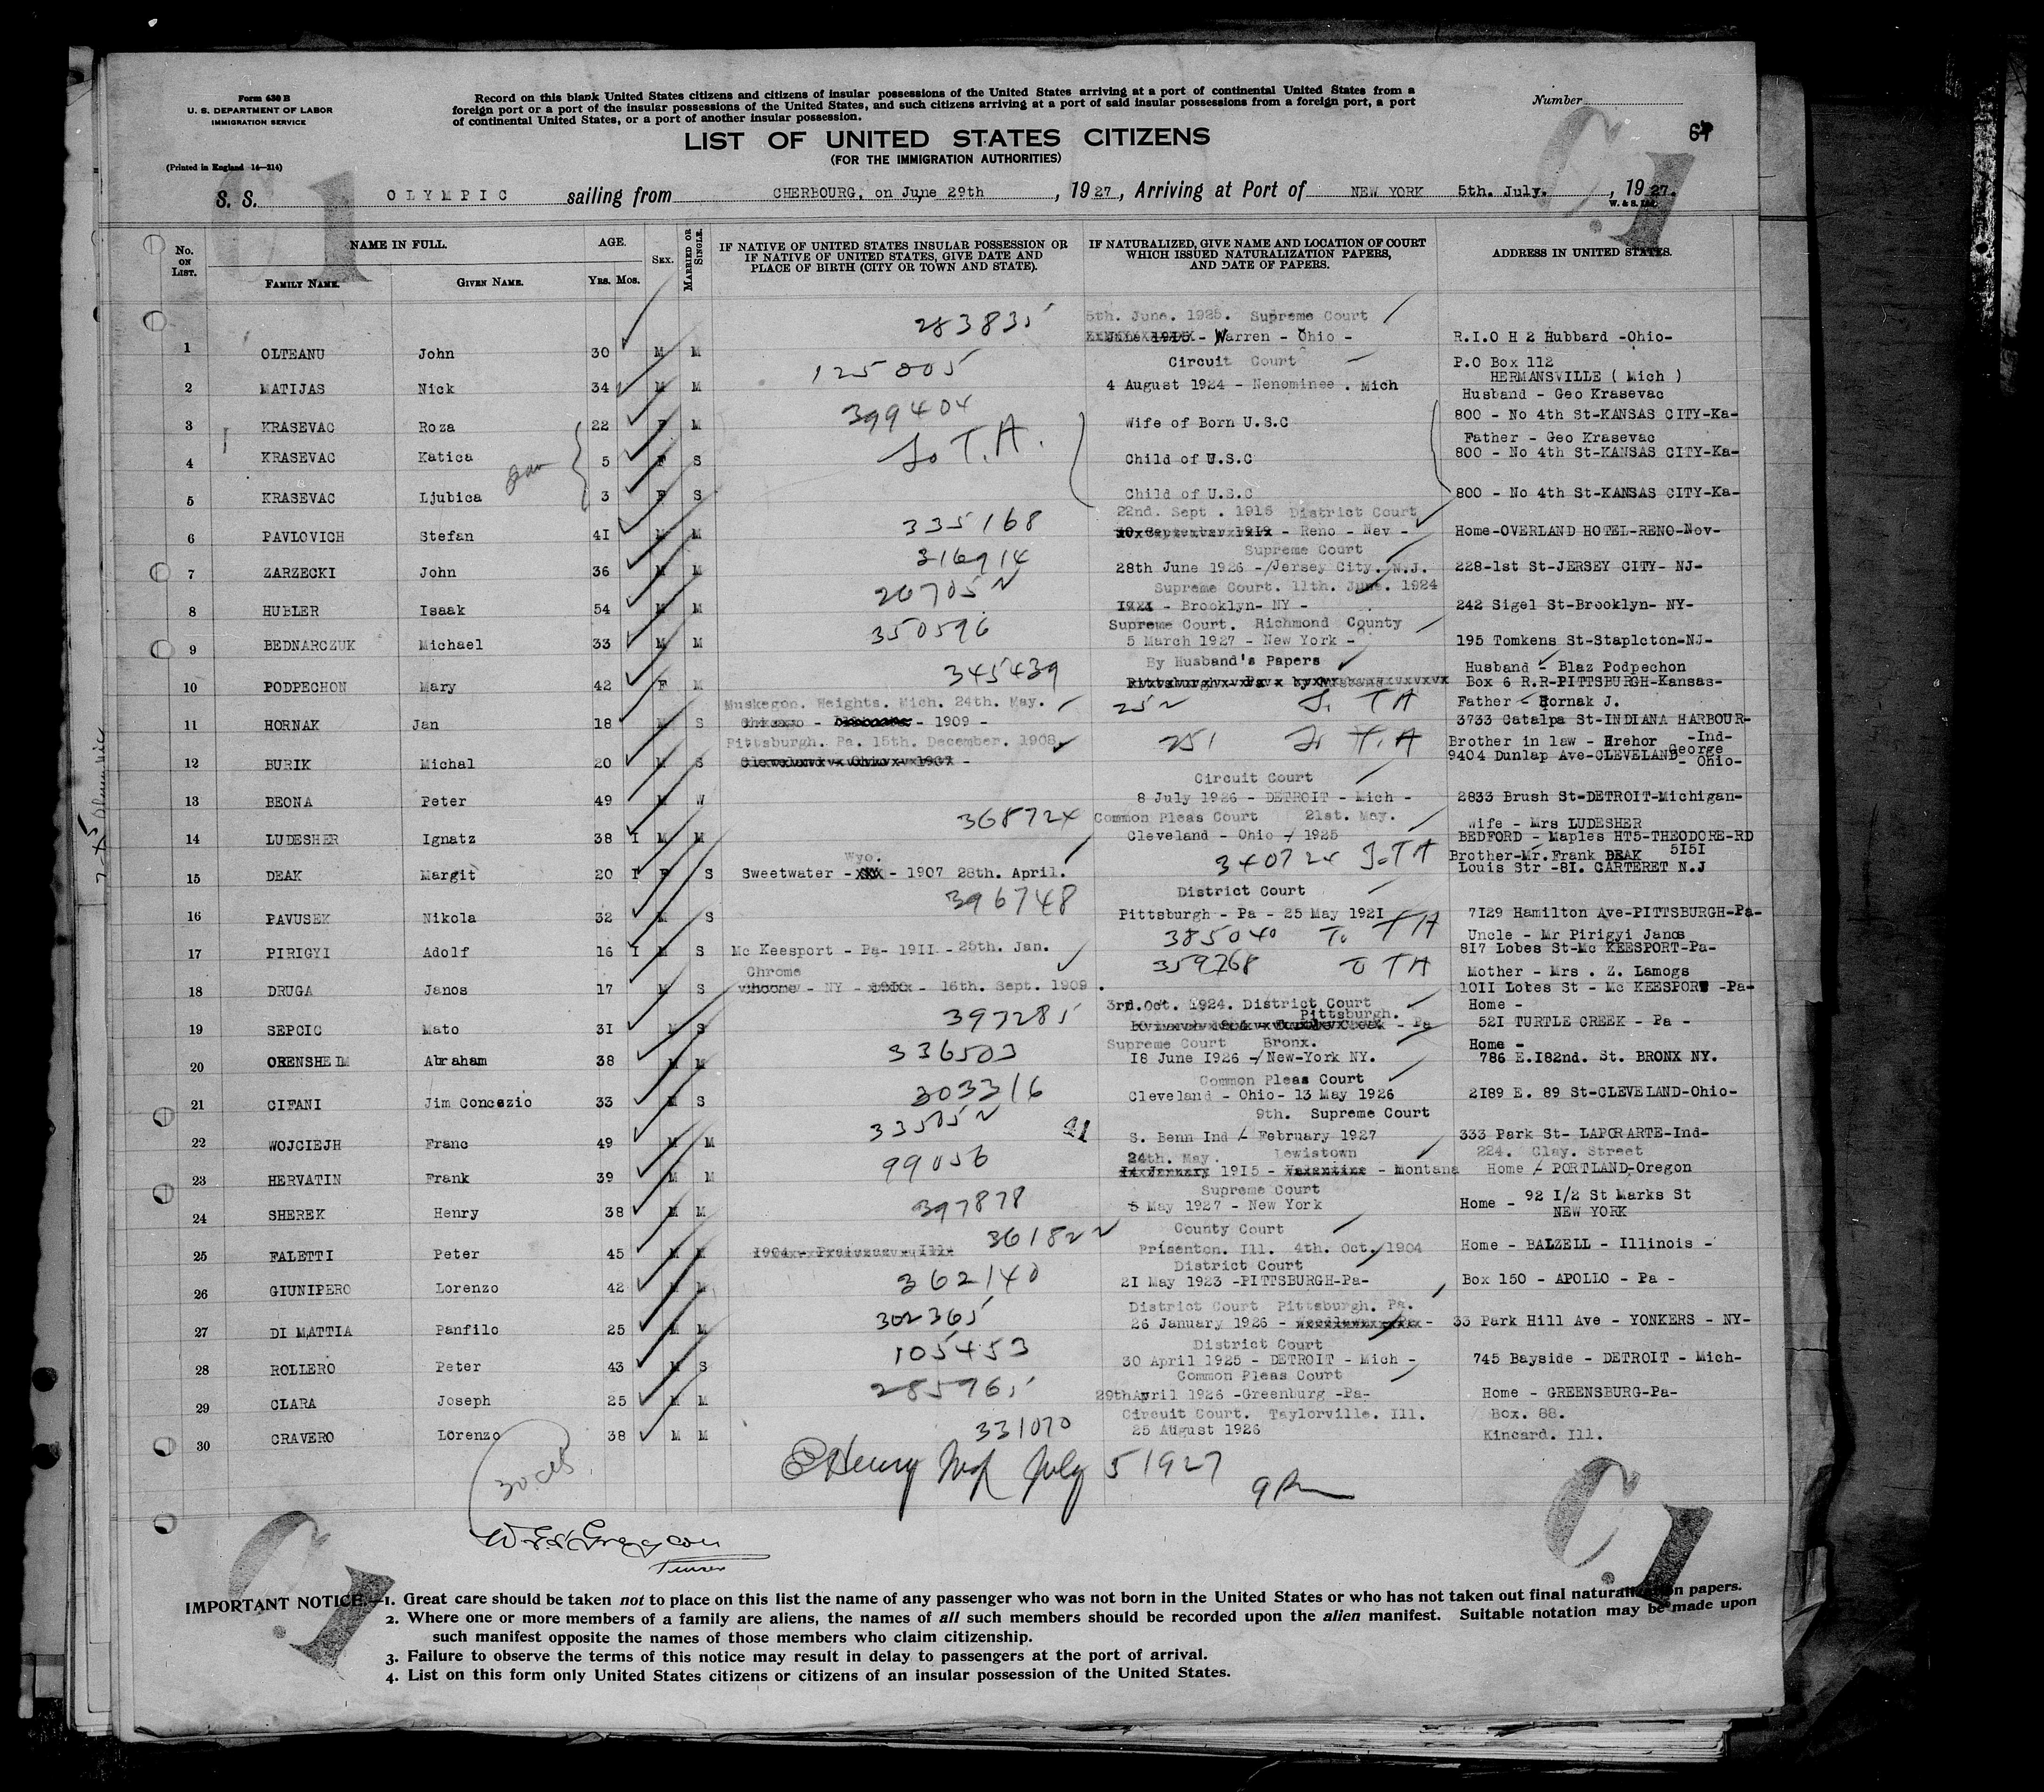 Form 630 B
U. S. DEPARTMENT OF LABOR
IMMIGRATION SERVICE
(Printed in England 14—214)
Record on this blank United States citizens and citizens of insular possessions of the United States arriving at a port of continental United States from a
foreign port or a port of the insular possessions of the United States, and such citizens arriving at a port of said insular possessions from a foreign port, a port
of continental United States, or a port of another insular possession.
Number
LIST OF UNITED STATES CITIZENS
(FOR THE IMMIGRATION AUTHORITIES)
S. S. OLYMPIC sailing from CHERBOURG, on June 29th, 1927, Arriving at Port of NEW YORK 5th. July., 1927.
W. & S. Ltd.
No. ON LIST. NAME IN FULL. FAMILY NAME. GIVEN NAME. AGE. YRS. MOS. SEX. MARRIED OR SINGLE. IF NATIVE OF UNITED STATES INSULAR POSSESSION OR IF NATIVE OF UNITED STATES, GIVE DATE AND PLACE OF BIRTH (CITY OR TOWN AND STATE). IF NATURALIZED, GIVE NAME AND LOCATION OF COURT WHICH ISSUED NATURALIZATION PAPERS, AND DATE OF PAPERS. ADDRESS IN UNITED STATES.
283835 5th. June. 1925. Supreme Court
1 OLTEANU John 30 M M Warren - Ohio - R.I.O H 2 Hubbard -Ohio-
125005 Circuit Court P.O Box 112
2 MATIJAS Nick 34 M M 4 August 1924 - Nenominee . Mich HERMANSVILLE ( Mich )
399404 Husband - Geo Krasevac
3 KRASEVAC Roza 22 F M Wife of Born U.S.C 800 - No 4th St-KANSAS CITY-Ka-
T.A. Father - Geo Krasevac
4 KRASEVAC Katica 5 F S Child of U.S.C 800 - No 4th St-KANSAS CITY-Ka-
5 KRASEVAC Ljubica 3 F S Child of U.S.C 800 - No 4th St-KANSAS CITY-Ka-
335168 22nd. Sept . 1916 District Court
6 PAVLOVICH Stefan 41 M M - Reno - Nev - Home-OVERLAND HOTEL-RENO-Nev-
316914 Supreme Court
7 ZARZECKI John 36 M M 28th June 1926 -/Jersey City. N.J. 228-1st St-JERSEY CITY- NJ-
Supreme Court. 11th. June. 1924
8 HUBLER Isaak 54 M M - Brooklyn- NY - 242 Sigel St-Brooklyn- NY-
350596 Supreme Court. Richmond County
9 BEDNARCZUK Michael 33 M M 5 March 1927 - New York - 195 Tomkens St-Stapleton-NJ-
345439 By Husband's Papers Husband - Blaz Podpechon
10 PODPECHON Mary 42 F M Box 6 R.R-PITTSBURGH-Kansas-
Muskegon. Heights. Mich. 24th. May. T A Father - Hornak J.
11 HORNAK Jan 18 M S - 1909 - 3733 Catalpa St-INDIANA HARBOUR-
Pittsburgh. Pa. 15th. December. 1908 251 T.A Brother in law - Hrehor George -Ind-
12 BURIK Michal 20 M S 9404 Dunlap Ave-CLEVELAND - Ohio-
Circuit Court
13 BEONA Peter 49 M W 8 July 1926 - DETROIT - Mich - 2833 Brush St-DETROIT-Michigan-
368724 Common Pleas Court 21st. May. Wife - Mrs LUDESHER
14 LUDESHER Ignatz 38 I M M Cleveland - Ohio - 1925 BEDFORD - Maples HTS-THEODORE-RD
Wyo. 340724 T A Brother-Mr. Frank DEAK 5151
15 DEAK Margit 20 I F S Sweetwater - - 1907 28th. April. Louis Str -81. CARTERET N.J
396748 District Court
16 PAVUSEK Nikola 32 M S Pittsburgh - Pa - 25 May 1921 7129 Hamilton Ave-PITTSBURGH-Pa-
385040 To T A Uncle - Mr Pirigyi Janos
17 PIRIGYI Adolf 16 I M S Mc Keesport - Pa- 1911 - 25th. Jan. 817 Lobes St-Mc KEESPORT-Pa-
Chrome 359768 T A Mother - Mrs . Z. Lamogs
18 DRUGA Janos 17 M S - NY - - 16th. Sept. 1909 . 1011 Lobes St - Mc KEESPORT -Pa-
397285 3rd.Oct. 1924. District Court Pittsburgh. Home -
19 SEPCIC Mato 31 M S - Pa 521 TURTLE CREEK - Pa -
336503 Supreme Court Bronx. Home -
20 ORENSHEIM Abraham 38 M M 18 June 1926 -/New-York NY. 786 E.182nd. St. BRONX NY.
303316 Common Pleas Court
21 CIFANI Jim Concezio 33 M S Cleveland - Ohio- 13 May 1926 2189 E. 89 St-CLEVELAND-Ohio-
9th. Supreme Court
22 WOJCIEJH Franc 49 M M S. Benn Ind - February 1927 333 Park St- LAPORARTE-Ind-
99056 24th. May. Lewistown 224. Clay. Street
23 HERVATIN Frank 39 M M 1915 - - Montana Home - PORTLAND-Oregon
397878 Supreme Court
24 SHEREK Henry 38 M M 5 May 1927 - New York Home - 92 1/2 St Marks St NEW YORK
County Court
25 FALETTI Peter 45 M M Prisenton. Ill. 4th. Oct. 1904 Home - BALZELL - Illinois -
362140 District Court
26 GIUNIPERO Lorenzo 42 M M 21 May 1923 -PITTSBURGH-Pa- Box 150 - APOLLO - Pa -
302365 District Court Pittsburgh. Pa.
27 DI MATTIA Panfilo 25 M M 26 January 1926 - 33 Park Hill Ave - YONKERS - NY-
105453 District Court
28 ROLLERO Peter 43 M S 30 April 1925 - DETROIT - Mich - 745 Bayside - DETROIT - Mich-
285765 Common Pleas Court
29 CLARA Joseph 25 M M 29thApril 1926 -Greenburg -Pa- Home - GREENSBURG-Pa-
Circuit Court. Taylorville. Ill. Box. 88.
30 CRAVERO Lorenzo 38 M M 331070 25 August 1926 Kincard. Ill.
Henry July 5 1927
IMPORTANT NOTICE.—1. Great care should be taken not to place on this list the name of any passenger who was not born in the United States or who has not taken out final naturalization papers.
2. Where one or more members of a family are aliens, the names of all such members should be recorded upon the alien manifest. Suitable notation may be made upon
such manifest opposite the names of those members who claim citizenship.
3. Failure to observe the terms of this notice may result in delay to passengers at the port of arrival.
4. List on this form only United States citizens or citizens of an insular possession of the United States.